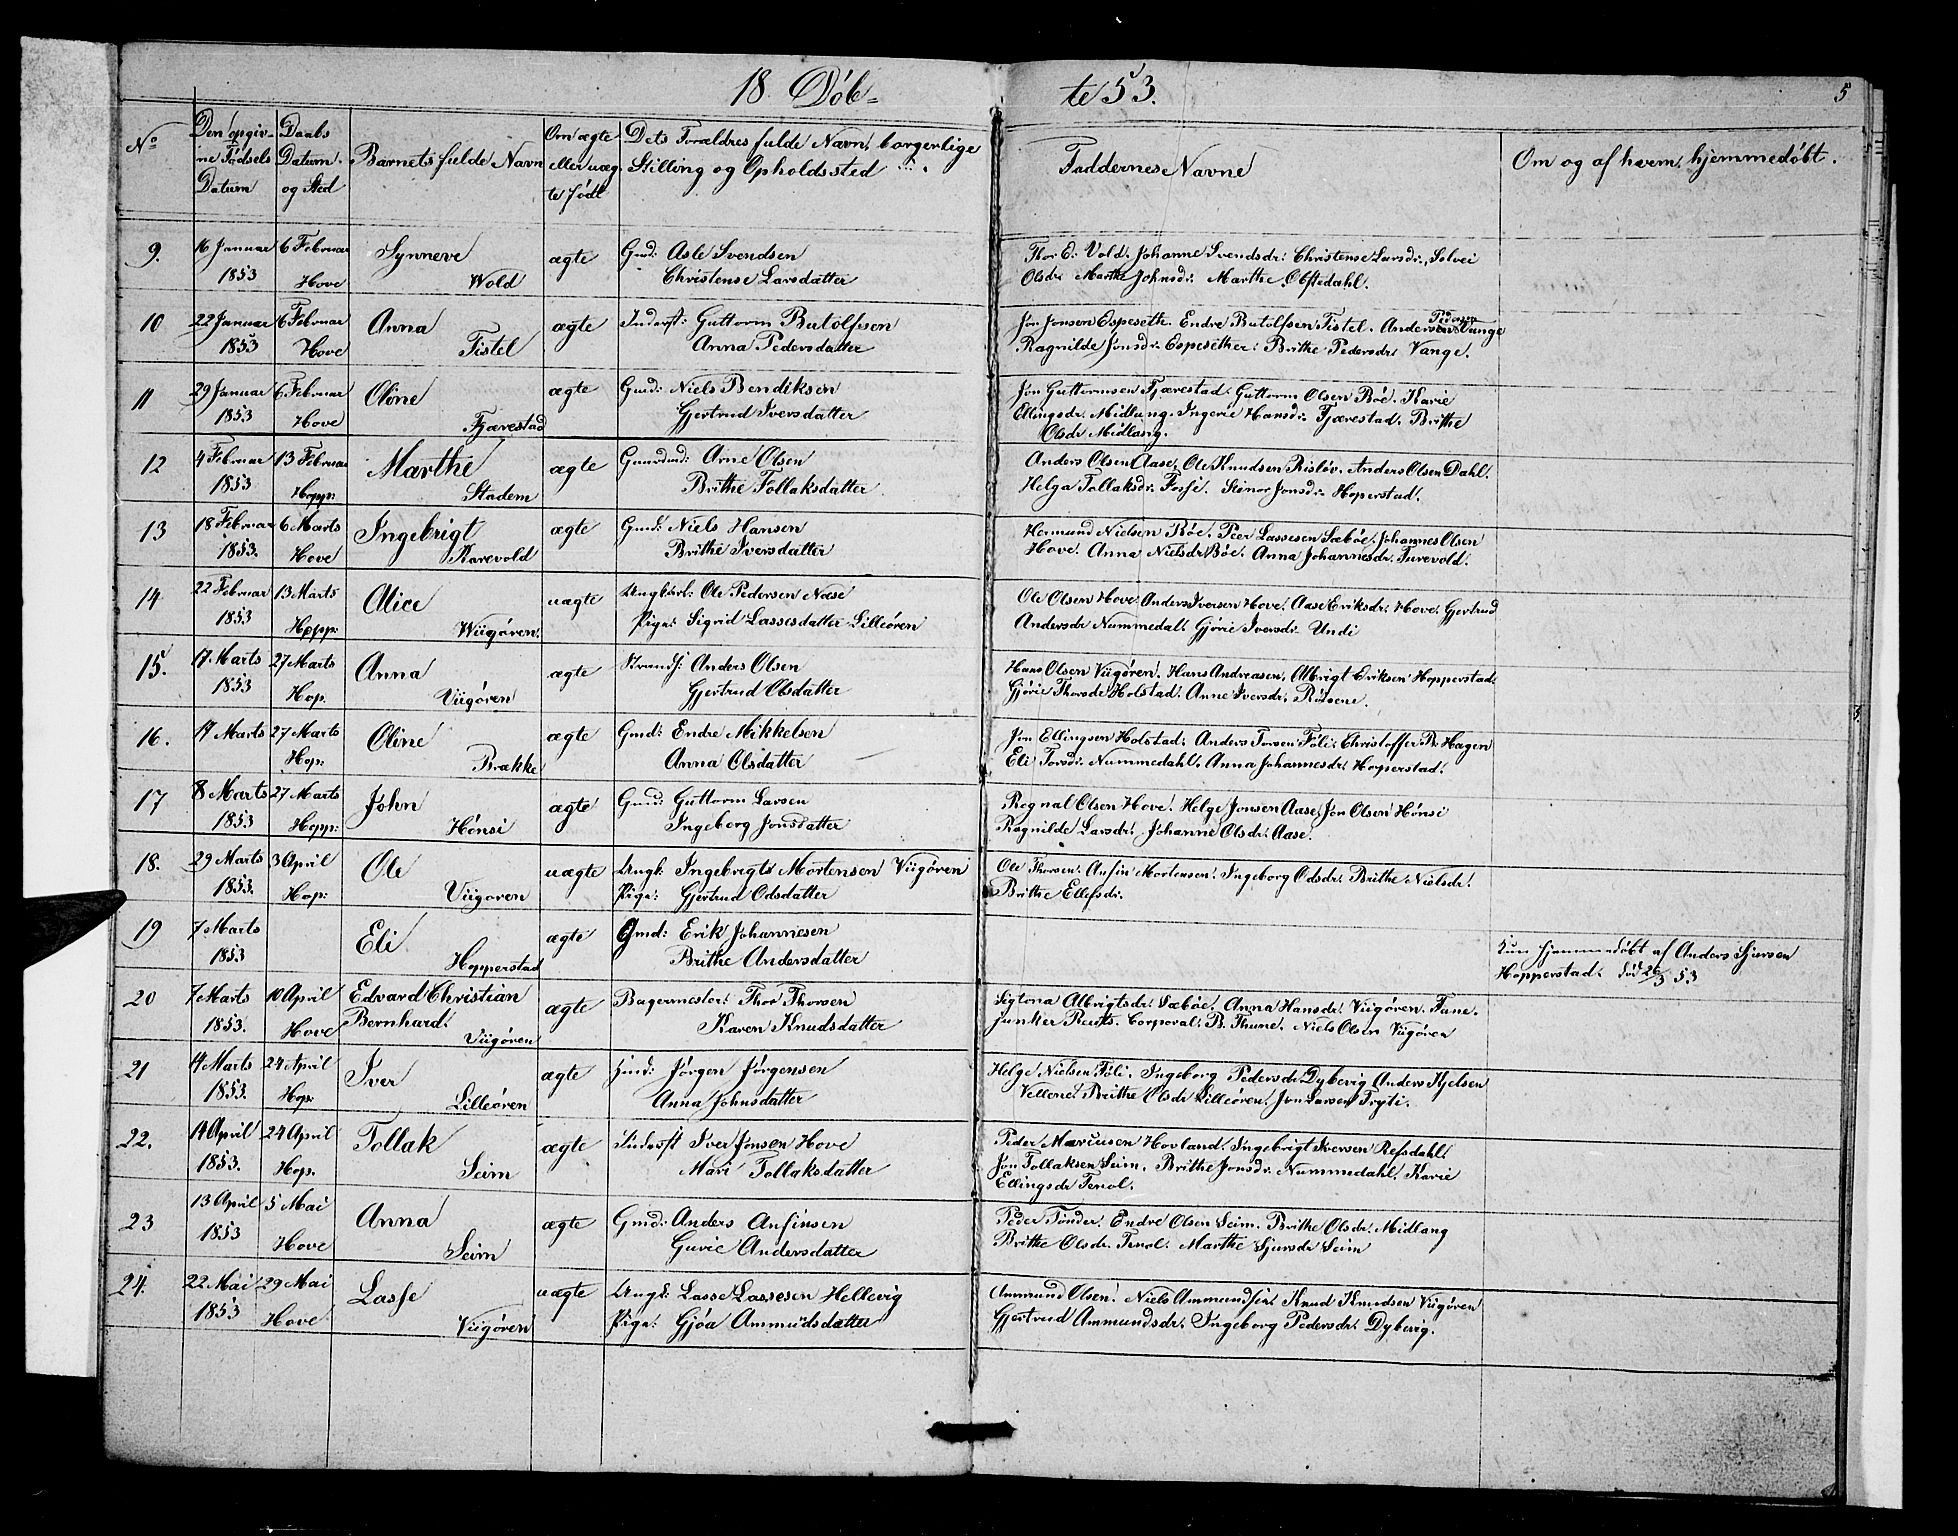 18 Döb= te 53. 5
No
Den opgiv-
ne Fødsels
Datum
Daabs
Datum
og Sted
Barnets fulde Navn
Om ægte
eller uæg
te født
Dets Forældres fulde Navn, borgerlige
Stilling og Opholdssted
Faddernes Navne
Om og af hvem, hjemmedøbt.
9. 16 Januar 6 Februar Synneve ægte Gmd: Asle Svendsen Thor E. Vold. Johanne Svendsdr: Christense Larsdr: Solvei
1853 Hove Wold Christense Larsdatter Olsdr Marthe Johnsdr: Marthe Ofstedahl.
10 22 Januar 6 Februar Anna ægte Inderst: Guttorm Butolfsen Jon Jonsen Espeseth. Endre Butolfsen Tistel. Anders Pedersen Vange
1853 Hove Tistel Anna Pedersdatter Ragnilde Jonsdr. Espesether: Brithe Pedersdr: Vange.
11 29 Januar 6 Februar Oline ægte Gmd: Niels Bendiksen Jon Guttormsen Fjærestad. Guttorm Olsen Böe. Karie
1853 Hove Fjærestad Gjertrud Iversdatter Ellingsdr. Midlang. Ingerie Hansdr: Fjærestad. Brithe
Olsdr Midlang.
12 4 Februar 13 Februar Marthe ægte Gaardmd: Arne Olsen Anders Olsen Aase, Ole Knudsen Risløv. Anders Olsen Dahl.
1853 Hopp: Stadem Brithe Tollaksdatter. Helga Tollaksdr: Fosse. Steinor Jonsdr: Hoperstad.
13 18 Februar 6 Marts Ingebrigt ægte Gmd: Niels Hansen Hermund Nielsen Böe. Peer Lassesen Sæböe. Johannes Olsen
1853. Hove Karevold Brithe Iversdatter Hove. Anna Nielsdr: Böe. Anna Johannesdr. Turevold.
14 22 Februar 13 Marts Alice uægte Ungkarl: Ole Pedersen Næse Ole Olsen Hove. Anders Iversen Hove. Aase Eriksdr: Hove. Gjertrud
1853 Hopp: Wiigören. Pige: Sigrid Lassesdatter Lilleören Andersdr Nummedal. Gjörie Iversdr. Undi
15. 17 Marts 27 Marts Anna ægte Strands: Anders Olsen Hans Olsen Viigören. Hans Andreasen. Albrigt Eriksen Hopperstad.
1853 Hop. Viigören Gjertrud Olsdatter Gjörie Thorsdr Holstad. Anne Iversdr.
16. 17 Marts 27 Marts Oline ægte Gmd: Endre Mikkelsen Jon Ellingsen Holstad. Anders Torsen Föli. Christoffer B. Hagen
Hop: Brække Anna Olsdatter Eli Torsdr. Nummedahl. Anna Johannesdr. Hoperstad.
17 8 Marts 27 Marts John ægte Gmd: Guttorm Larsen Rognal Olsen Hove. Helge Jonsen Aase. Jon Olsen Hönsi
1853 Hopp: Hönsi Ingeborg Jonsdatter Ragnilde Larsdr. Johanne Olsdr. Aase.
18. 29 Marts 3 April Ole uægte Ungk: Ingebrigt Mortensen Viigören Ole Thorsen. Anfin Mortensen. Ingeborg Odsdr. Brithe Nielsdr.
1853. Hop: Viigoren Pige: Gjertrud Odsdatter Brithe Ellefsdr.
19 7 Marts Eli ægte Gmd: Erik Johannesen Kun hjemmedöbt af Anders Sjursen
1853 Hopperstad Brithe Andersdatter Hopperstad. död 26/3 53
20 7 Marts 10 April Edvard Christian ægte Bagermester: Thor Thorsen Sigtona Albrigtsdr. Sæböe. Anna Hansdr. Viigören. Fane-
1853. Hove Bernhard. Viigören Karen Knudsdatter junker Reuts. Corporal. B. Thune. Niels Olsen Viigören
21 14 Marts 24 April Iver ægte Hmd: Jörgen Jörgensen Helge Nielsen Föli. Ingeborg Pedersdr. Dybevig Anders Kjelsen
1853. Hop: Lilleören Anna Johnsdatter Vellene. Brithe Olsdr Lilleören. Jon Larsen Tryti.
22. 14 April 24 April Tollak ægte Inderst Iver Jonsen Hove Peder Marcusen Hovland. Ingebrigt Iversen Refsdahl.
1853. Hop. Seim Mari Tollaksdatter Jon Tollaksen Seim. Brithe Jonsdr. Nummedahl. Karie
Ellingsdr Tenol.
23 13 April 5 Mai Anna ægte Gmd: Anders Anfinsen Peder Tönder. Endre Olsen Seim. Brithe Olsdr. Midlang
1853 Hove Seim Gurie Andersdatter Brithe Olsdr. Tenol. Marthe Sjursdr Seim
24. 22 Mai 29 Mai Lasse uægte Ungk: Lasse Lassesen Hellevig Ammund Olsen. Niels Ammundsen. Knud Knudsen Viigören
1853 Hove Viigören Pige: Gjöa Ammundsdatter Gjertrud Ammundsdr. Ingeborg Pedersdr. Dybevig.